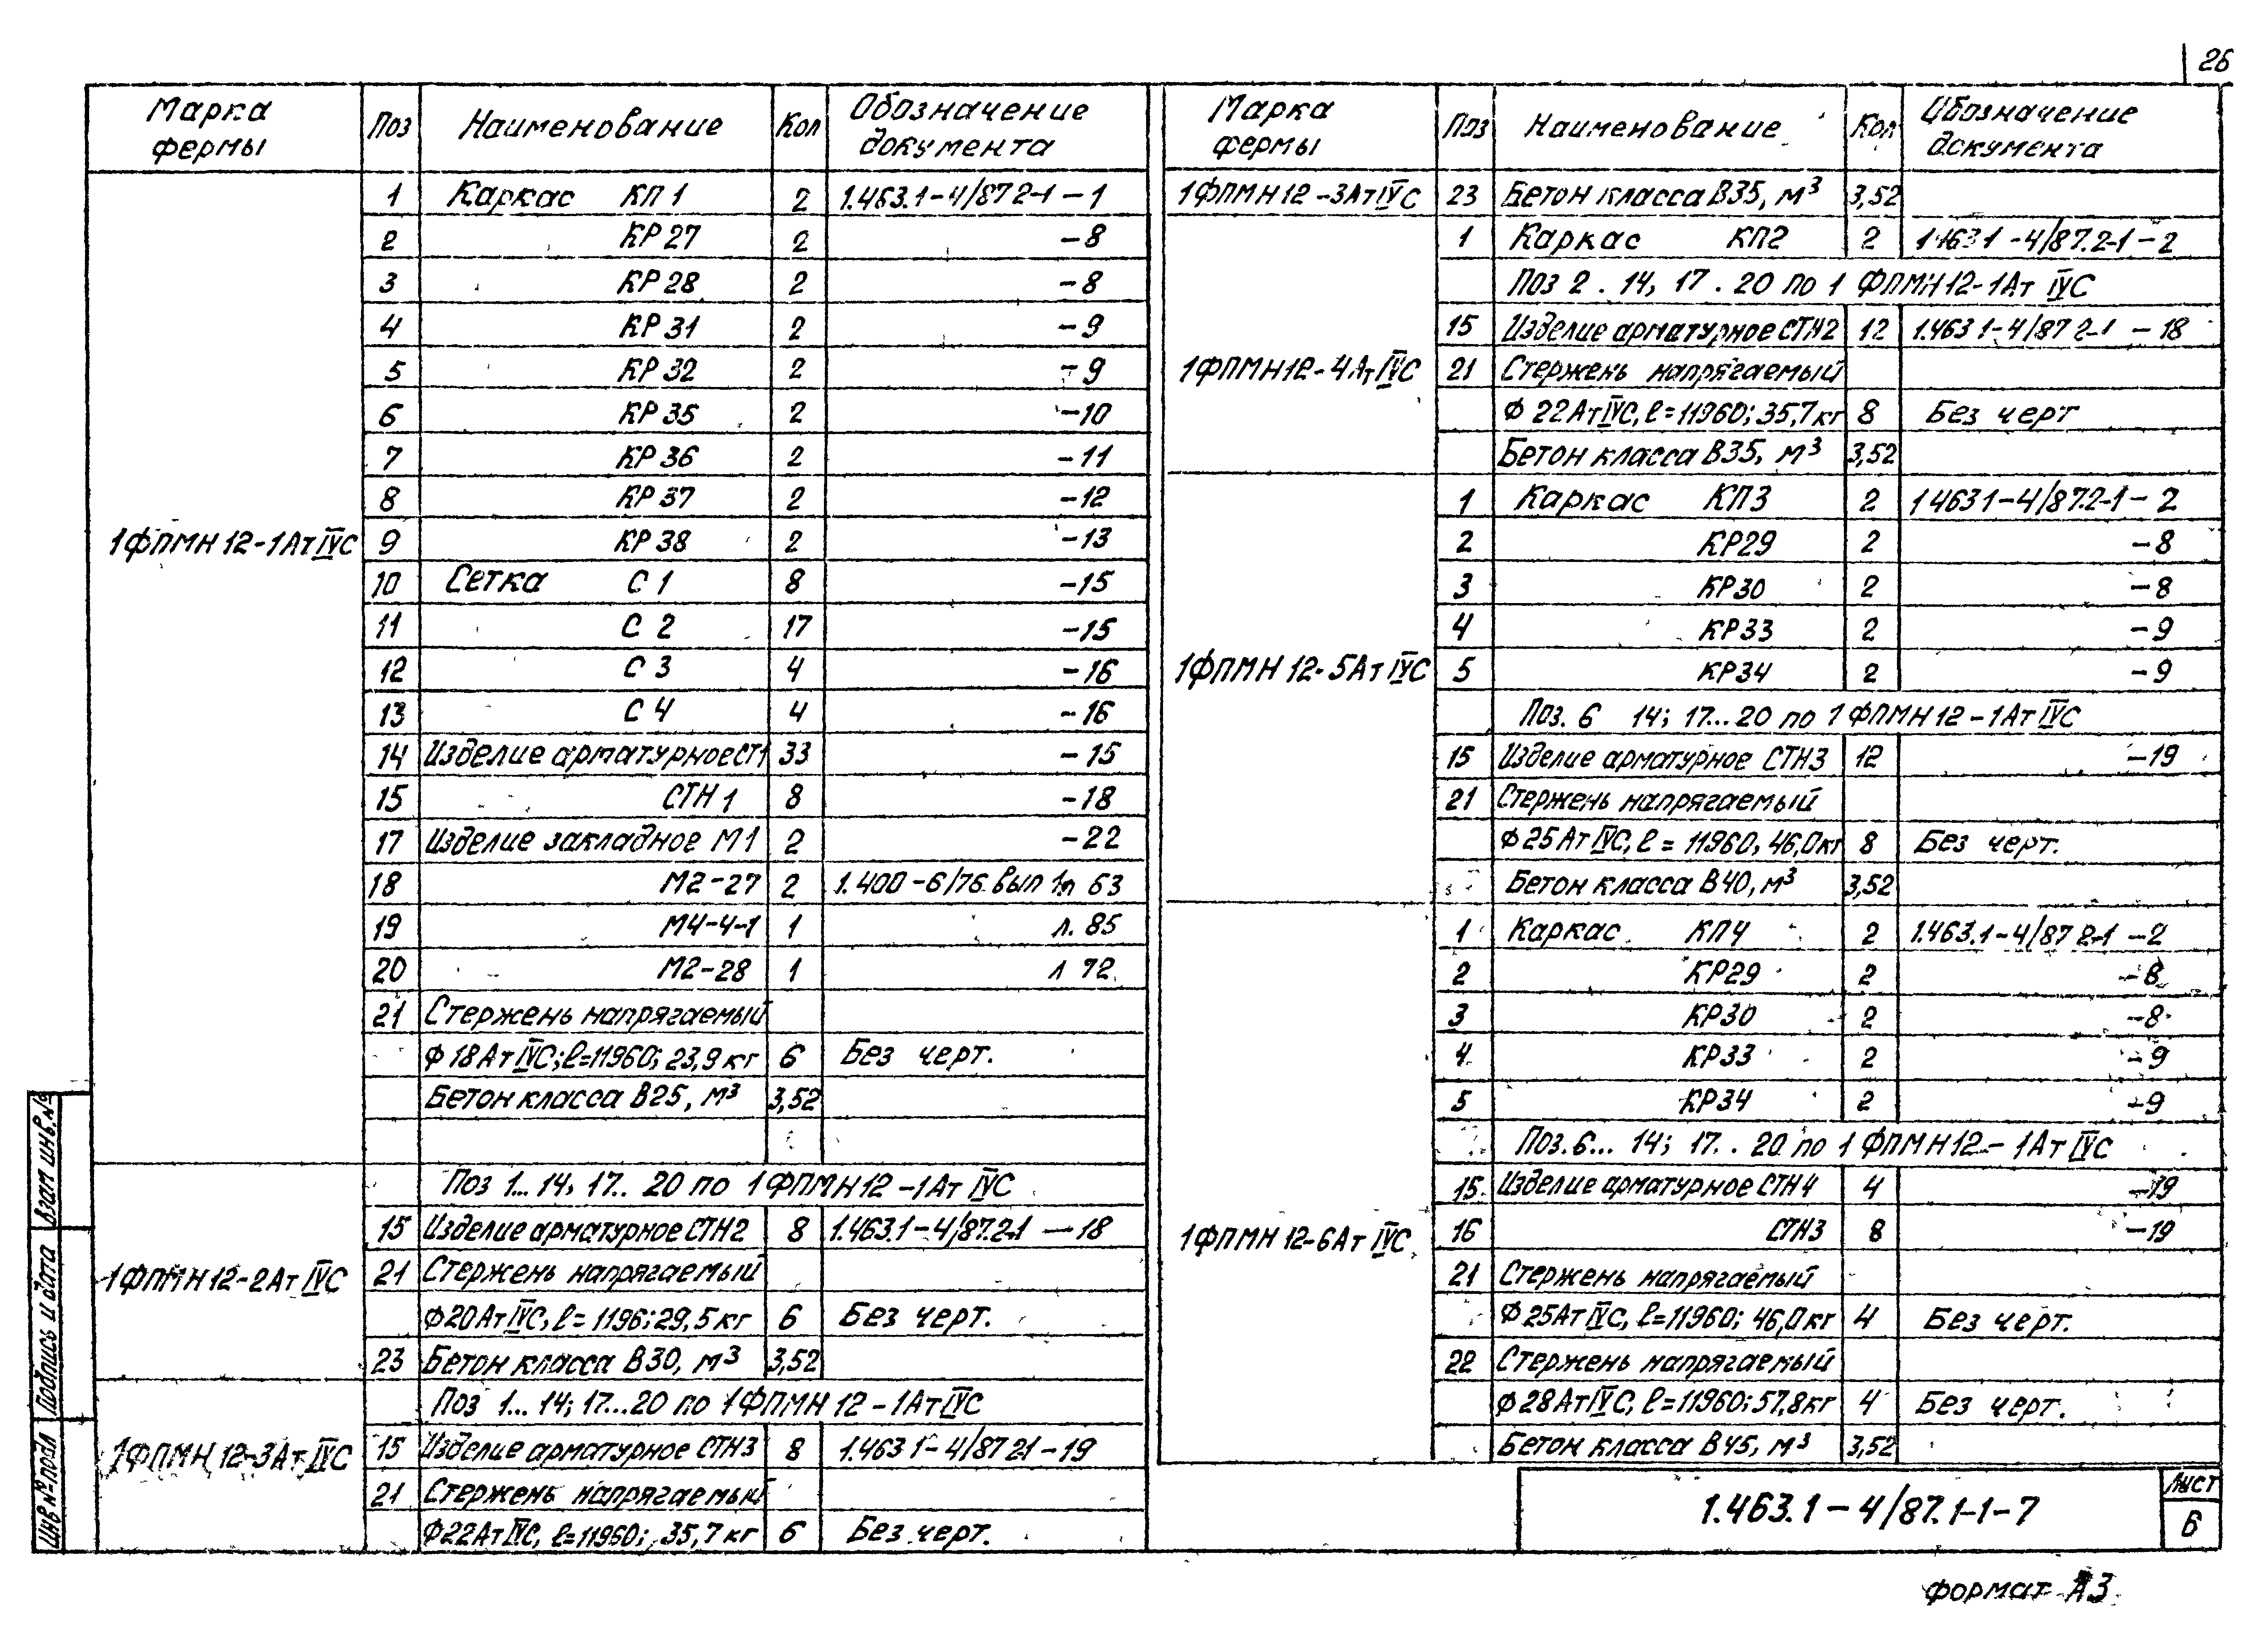 26
Марка фермы Поз Наименование Кол Обозначение документа
1ФПМН12-1АтIVС
1 Каркас КП1 2 1.463.1-4/87 2-1 -1
2 КР27 2 -8
3 КР28 2 -8
4 КР31 2 -9
5 КР32 2 -9
6 КР35 2 -10
7 КР36 2 -11
8 КР37 2 -12
9 КР38 2 -13
10 Сетка С1 8 -15
11 С2 17 -15
12 С3 4 -16
13 С4 4 -16
14 Изделие арматурное СТ1 33 -15
15 СТН1 8 -18
17 Изделие закладное М1 2 -22
18 М2-27 2 1.400-6/76 вып 1л 63
19 М4-4-1 1 л. 85
20 М2-28 1 л 72
21 Стержень напрягаемый
ф18АтIVС; ℓ=11960; 23,9кг 6 Без черт.
Бетон класса В25, м³ 3,52
1ФПМН12-2АтIVС
Поз 1... 14, 17.. 20 по 1ФПМН12-1АтIVС
15 Изделие арматурное СТН2 8 1.463.1-4/87.2-1 -18
21 Стержень напрягаемый
ф20АтIVС, ℓ=1196; 29,5кг 6 Без черт.
23 Бетон класса В30, м³ 3,52
1ФПМН12-3АтIVС
Поз 1... 14; 17...20 по 1ФПМН12-1АтIVС
15 Изделие арматурное СТН3 8 1.463 1-4/87 21-19
21 Стержень напрягаемый
ф22АтIVС, ℓ=11960; 35,7кг 6 Без черт.
Марка фермы Поз Наименование Кол Обозначение документа
1ФПМН12-3АтIVС 23 Бетон класса В35, м³ 3,52
1ФПМН12-4АтIVС
1 Каркас КП2 2 1.463 1-4/87.2-1-2
Поз 2 . 14, 17 . 20 по 1ФПМН12-1АтIVС
15 Изделие арматурное СТН2 12 1.463 1-4/87 2-1 -18
21 Стержень напрягаемый
ф22АтIVС, ℓ=11960; 35,7кг 8 Без черт
Бетон класса В35, м³ 3,52
1ФПМН12-5АтIVС
1 Каркас КП3 2 1 463 1-4/87.2-1-2
2 КР29 2 -8
3 КР30 2 -8
4 КР33 2 -9
5 КР34 2 -9
Поз. 6 14; 17...20 по 1ФПМН12-1АтIVС
15 Изделие арматурное СТН3 12 -19
21 Стержень напрягаемый
ф25АтIVС, ℓ=11960, 46,0кг 8 Без черт.
Бетон класса В40, м³ 3,52
1ФПМН12-6АтIVС
1 Каркас КП4 2 1.463.1-4/87 2-1 -2
2 КР29 2 -8
3 КР30 2 -8
4 КР33 2 -9
5 КР34 2 -9
Поз. 6... 14; 17. . 20 по 1ФПМН12-1АтIVС
15 Изделие арматурное СТН4 4 -19
16 СТН3 8 -19
21 Стержень напрягаемый
ф25АтIVС, ℓ=11960; 46,0кг 4 Без черт.
22 Стержень напрягаемый
ф28АтIVС, ℓ=11960; 57,8кг 4 Без черт.
Бетон класса В45, м³ 3,52
1.463.1-4/87.1-1-7
Лист
6
Инв № подл Подпись и дата Взам инв. №
формат А3